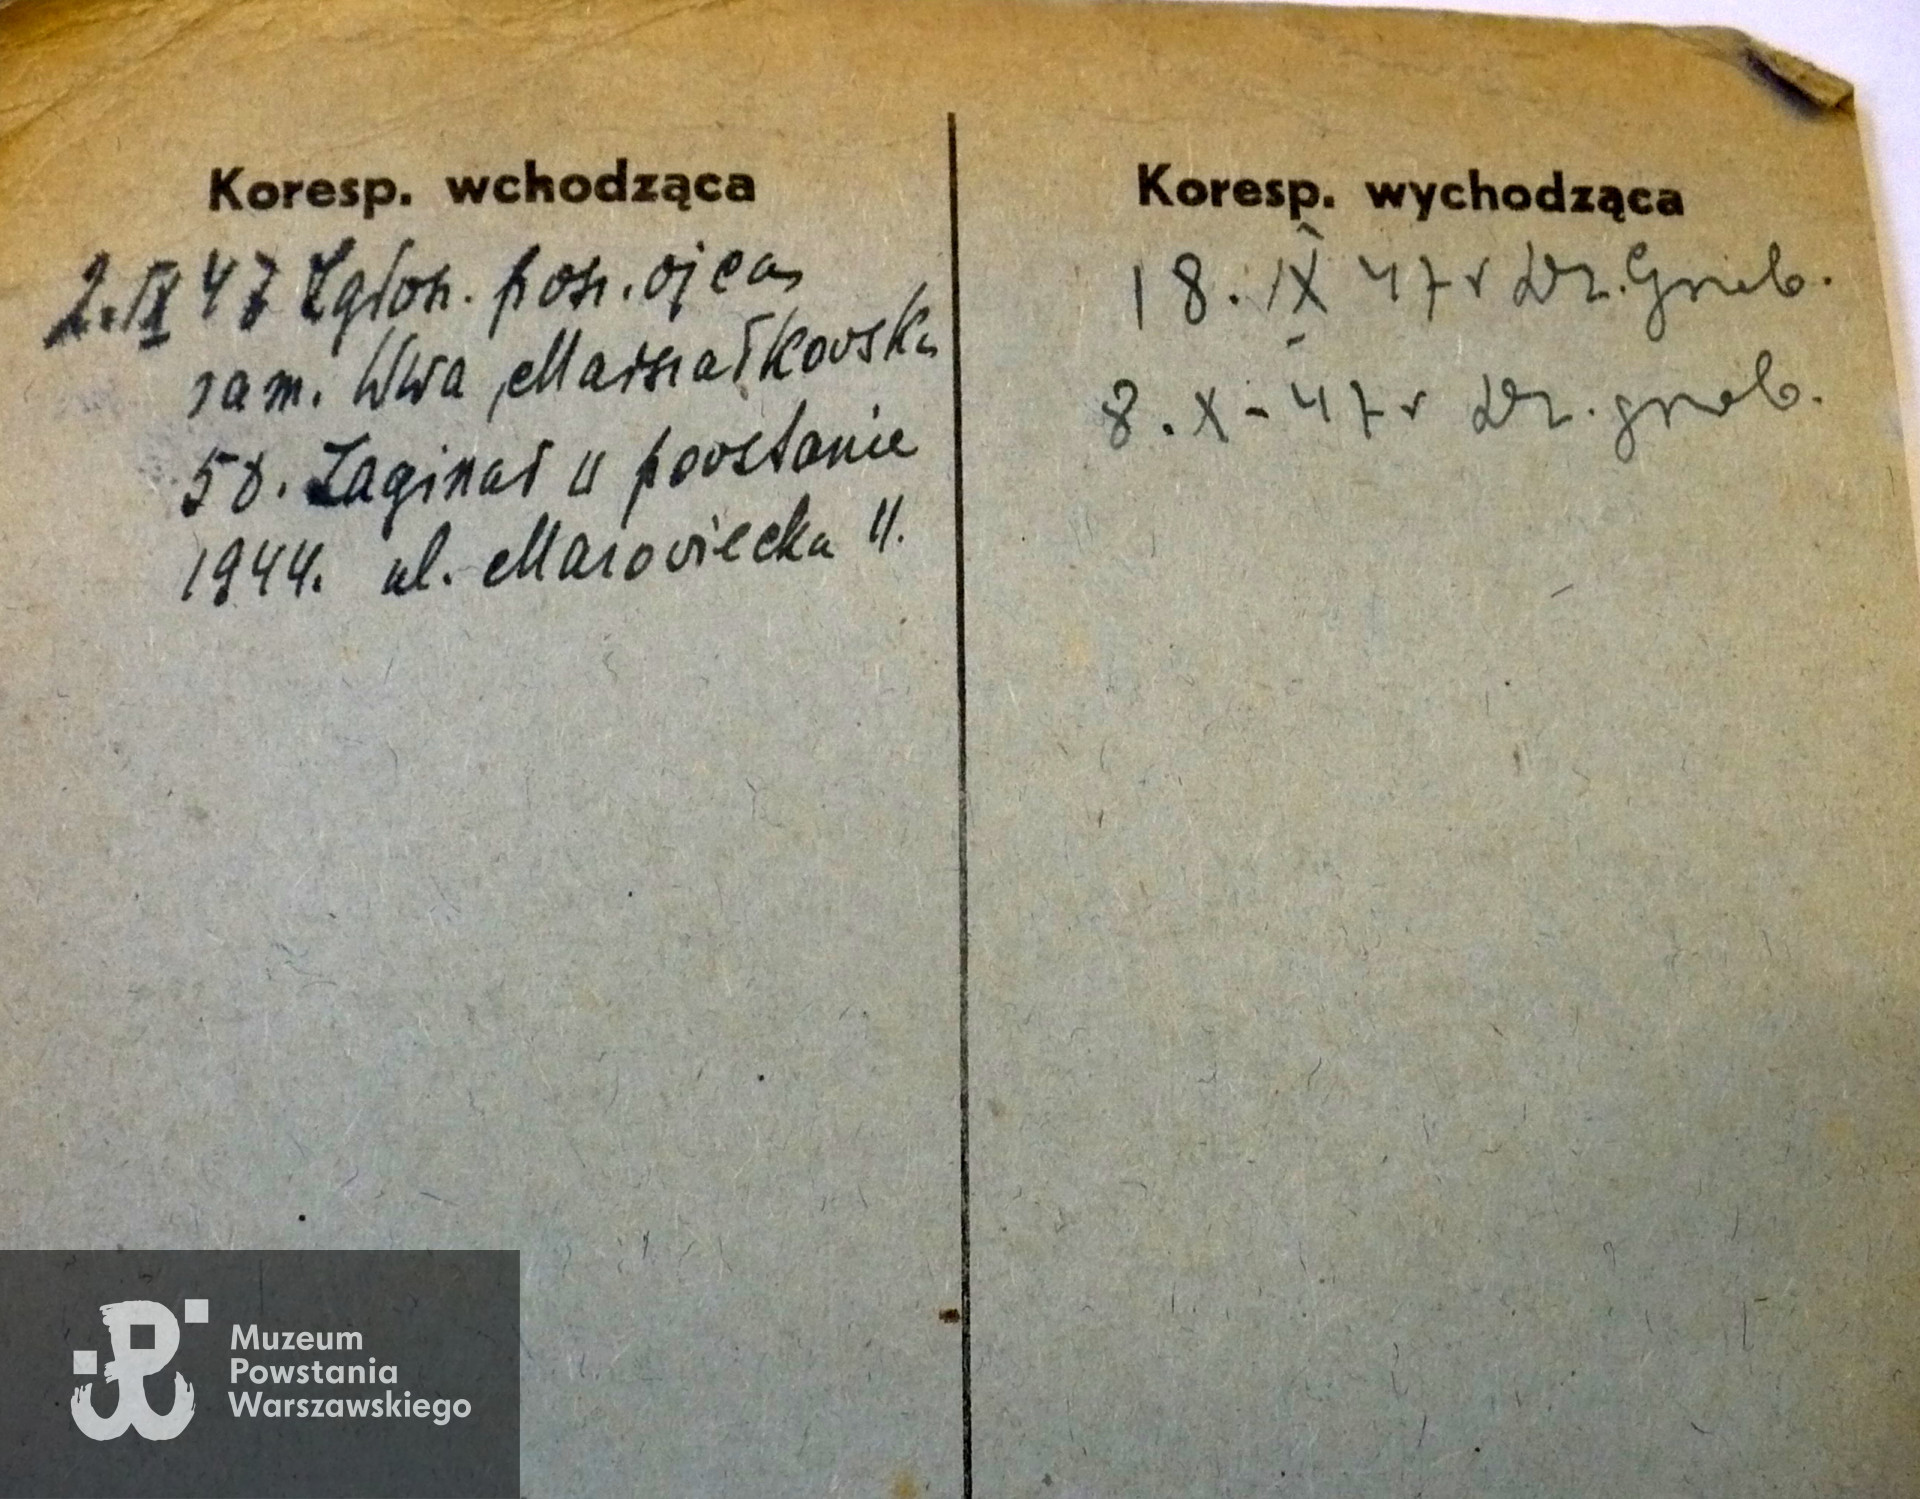 Koresp. wchodząca
2.IX 47 Zgłosz. posz. ojca
zam. Wwa Marszałkowska
58. Zaginął w powstanie
1944. ul. Mazowiecka 11.
Koresp. wychodząca
18. IX 47 r Dz. Grob.
8. X - 47 r Dz. grob.
Muzeum
Powstania
Warszawskiego